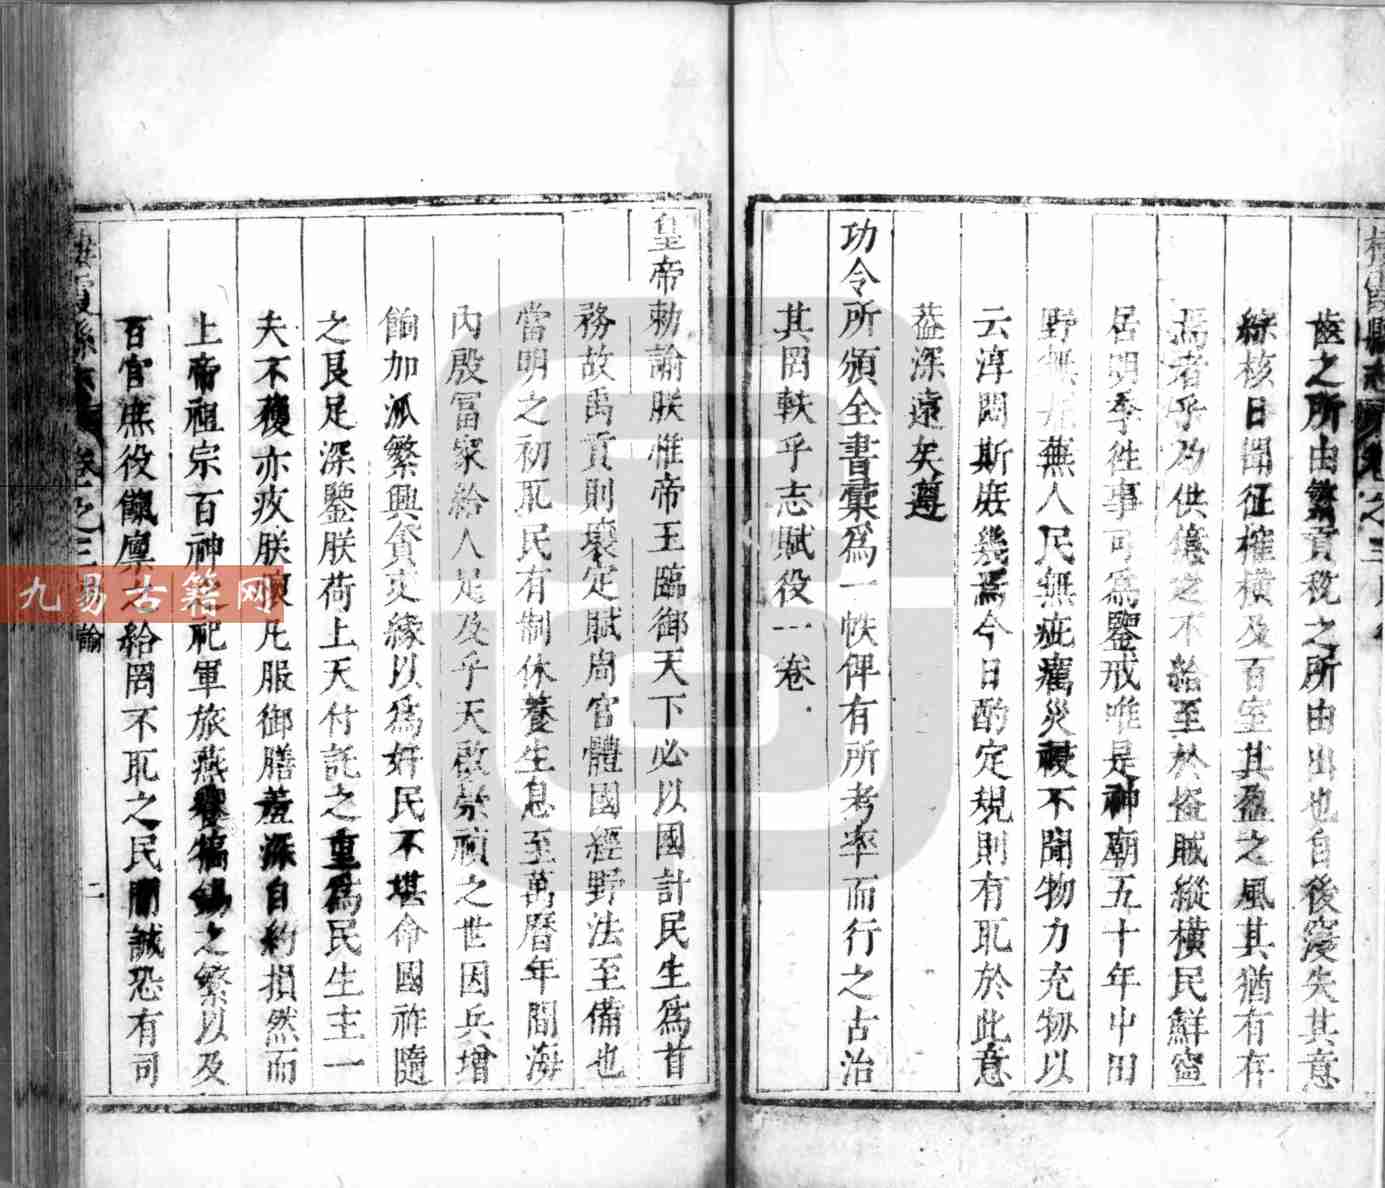 齒之所由繁貢稅之所由出也自後寖失其意
綜核日聞征榷橫及百室其盈之風其猶有存
焉者乎乃供億之不給至於盜賊縱橫民鮮寧
居明季徃事可爲鑒戒唯是神廟五十年中田
野無荒蕪人民無疵癘災祲不聞物力充牣以
云淳悶斯庶幾焉今日酌定規則有取於此意
葢深遠矣遵
功令所頒全書彙爲一帙俾有所考率而行之古治
其罔軼乎志賦役一卷
皇帝勅諭朕惟帝王臨御天下必以國計民生爲首
務故禹貢則壤定賦周官體國經野法至備也
當明之初取民有制休養生息至萬曆年間海
內殷富家給人足及乎天啟崇禎之世因兵增
餉加派繁興貪吏緣以爲奸民不堪命國祚隨
之良足深鑒朕荷上天付託之重爲民生主一
夫不獲亦疚朕懷凡服御膳羞深自約損然而
上帝祖宗百神之祀軍旅燕饗犒錫之繁以及
百官庶役餼廩之給罔不取之民間誠恐有司
霞縣志
卷之三
諭
二
九易古籍网